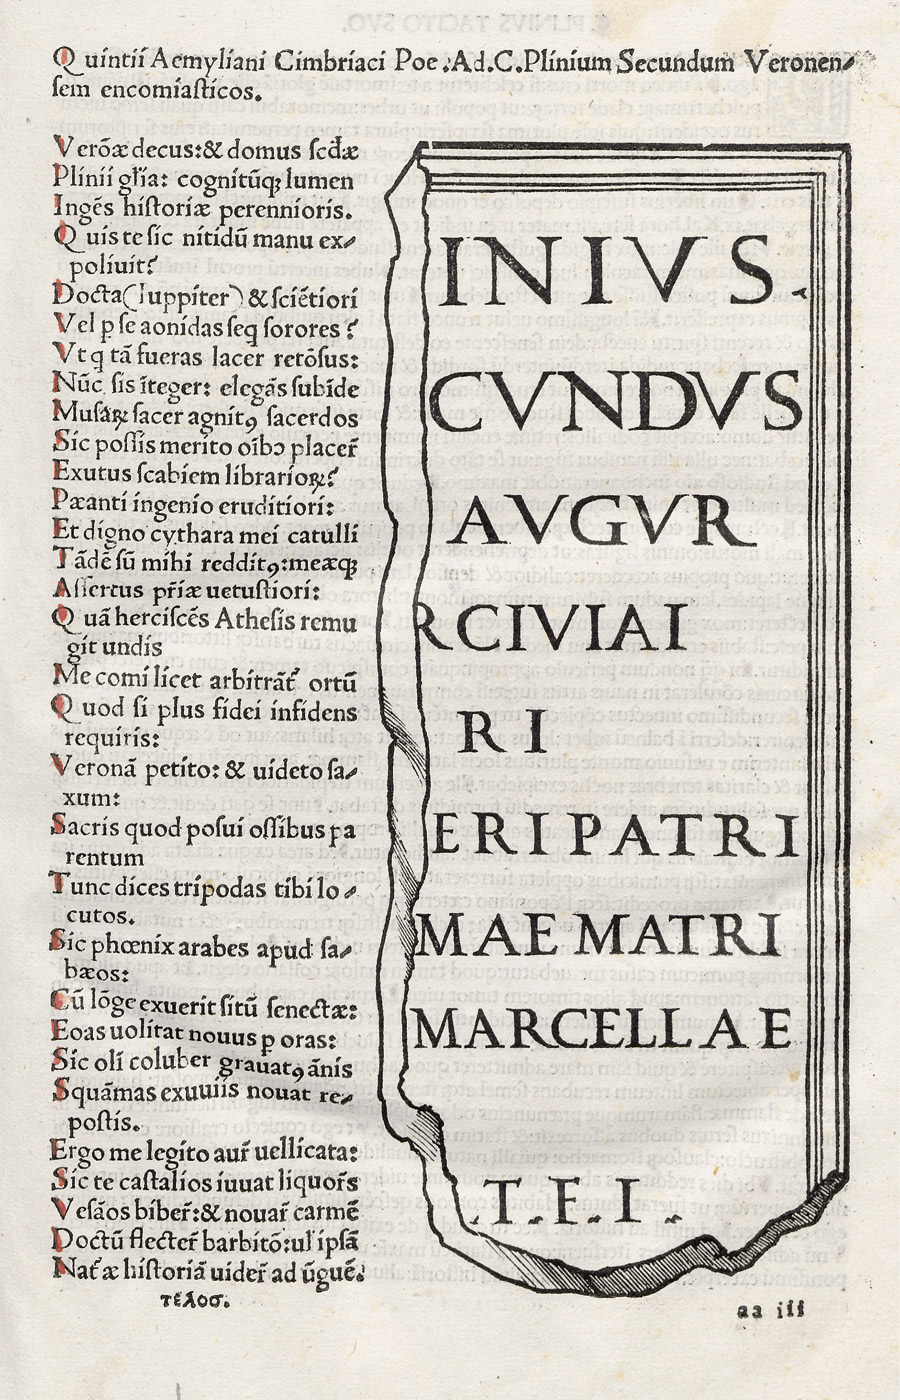 Quintii Aemyliani Cimbriaci Poe.Ad.C.Plinium Secundum Veronen-
sem encomiasticos.
Verōæ decus:& domus scd̄æ
Plinii gl̄ia: cognitūqꝫ lumen
Ingēs historiæ perennioris.
Quis te sic nitidū manu ex-
poliuit?
Docta(Iuppiter)& sciētiori
Vel ꝑ se aonidas seq sorores?
Vt q tā fueras lacer retōsus:
Nūc sis īteger: elegās subīde
Musaꝝ sacer agnitꝰ sacerdos
Sic possis merito oībꝰ placer̄
Exutus scabiem librarioꝝ?
Pæanti ingenio eruditiori:
Et digno cythara mei catulli
Tādē sū mihi redditꝰ:meæqꝫ
Assertus pr̄iæ uetustiori:
Quā herciscēs Athesis remu
git undis
Me comi licet arbitrāt̄ ortū
Quod si plus fidei infidens
requiris:
Veronā petito: & uideto sa-
xum:
Sacris quod posui ossibus pa
rentum
Tunc dices tripodas tibi lo-
cutos.
Sic phœnix arabes apud sa-
bæos:
Cū lōge exuerit sitū senectæ:
Eoas uolitat nouus ꝑ oras:
Sic olī coluber grauatꝰ ānis
Squāmas exuuiis nouat re-
postis.
Ergo me legito aur̄ uellicata:
Sic te castalios iuuat liquor̄s
Vesāos biber̄:& nouar̄ carmē
Doctū flecter̄ barbitō:ul̄ ipsā
Nat̄æ historiā uider̄ ad ūguē.
τέλοσ.
INIVS.
CVNDVS
AVGVR
RCIVIAI
RI
ERI PATRI
MAE MATRI
MARCELLAE
.T.F.I.
aa iii